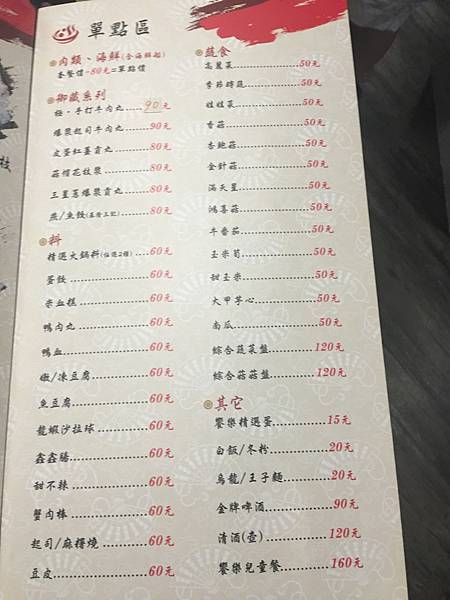 單點區
肉類、海鮮(含海鮮船)
套餐價-80元=單點價
御藏系列
極·手打牛肉丸......90元
爆漿起司牛肉丸......90元
皮蛋紅薑貢丸......80元
菇帽花枝漿......80元
三星蔥爆漿貢丸......80元
燕/魚餃......80元
料
精選火鍋料(任選2種)....60元
蛋餃......60元
米血糕......60元
鴨肉丸......60元
鴨血......60元
嫩/凍豆腐......60元
魚豆腐......60元
龍蝦沙拉球......60元
鑫鑫腸......60元
甜不辣......60元
蟹肉棒......60元
起司/麻糬燒......60元
豆皮......60元
蔬食
高麗菜......50元
季節時蔬......50元
娃娃菜......50元
香菇......50元
杏鮑菇......50元
金針菇......50元
滿天星......50元
鴻喜菇......50元
牛番茄......50元
玉米筍......50元
甜玉米......50元
大甲芋心......50元
南瓜......50元
綜合蔬菜盤......120元
綜合菇菇盤......120元
其它
饗樂精選蛋......15元
白飯/冬粉......20元
烏龍/王子麵......20元
金牌啤酒......90元
清酒(壺)......120元
饗樂兒童餐......160元